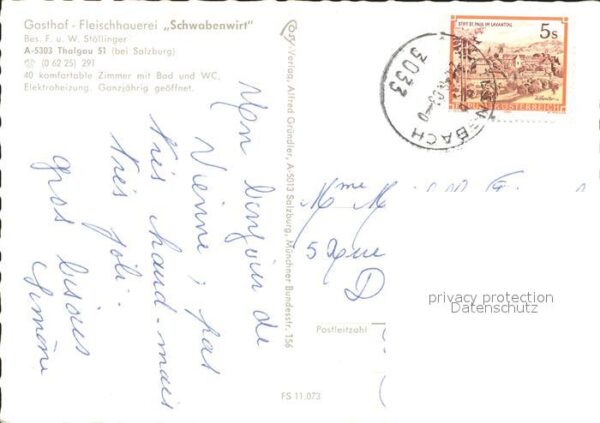 Gasthof - Fleischhauerei „Schwabenwirt"
Bes. F. u. W. Stöllinger
A-5303 Thalgau 51 (bei Salzburg)
(0 62 25) 291
40 komfortable Zimmer mit Bad und WC,
Elektroheizung. Ganzjährig geöffnet.
Mon bonjour de
Vienne, pas
très chaud-mais
très joli.
gros bisous
Simone
Cosy-Verlag, Alfred Gründler, A-5013 Salzburg, Münchner Bundesstr. 156
STIFT ST. PAUL IM LAVANTTAL
5s
REPUBLIK ÖSTERREICH
3033
Mme M
5 Rue
D
privacy protection
Datenschutz
Postleitzahl
FS 11.073